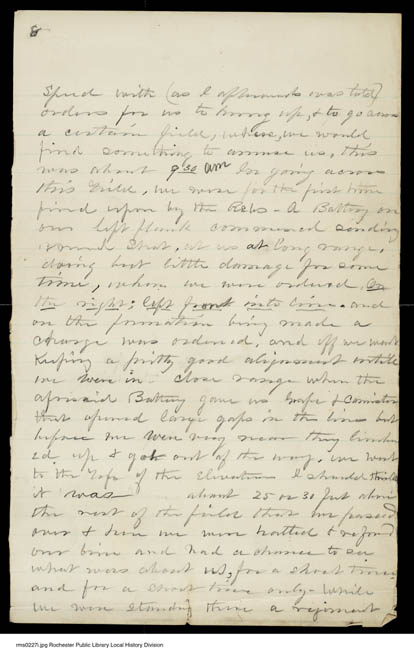 8
Sped with (as I afterwards was told)
orders for us to hurry up, & to go across
a certain field, where, we would
find something to amuse us, this
was about 9.30 am In going across
this field, we were for the first time
fired upon by the Rebs - A Battery on
our left flank commenced sending
round Shot, at us at long range,
doing but little damage for some
time, when we were ordered, On
the right; left front into line. and
on the formation being made a
charge was ordered, and off we went
Keeping a pretty good alignment untill
we were in close range when the
aforsaid Battery gave us Grape & Cannister
that opened large gaps in the line but
before we were very near they limber
ed up & got out of the way. we went
to the Top of the Elevation I should think
it was about 25 or 30 feet above
the rest of the field that we passed
over & here we were halted & reformed
our line and had a chance to see
what was about us, for a short time
and for a short time only - While
we were standing there a regiment
rms0227i.jpg Rochester Public Library Local History Division